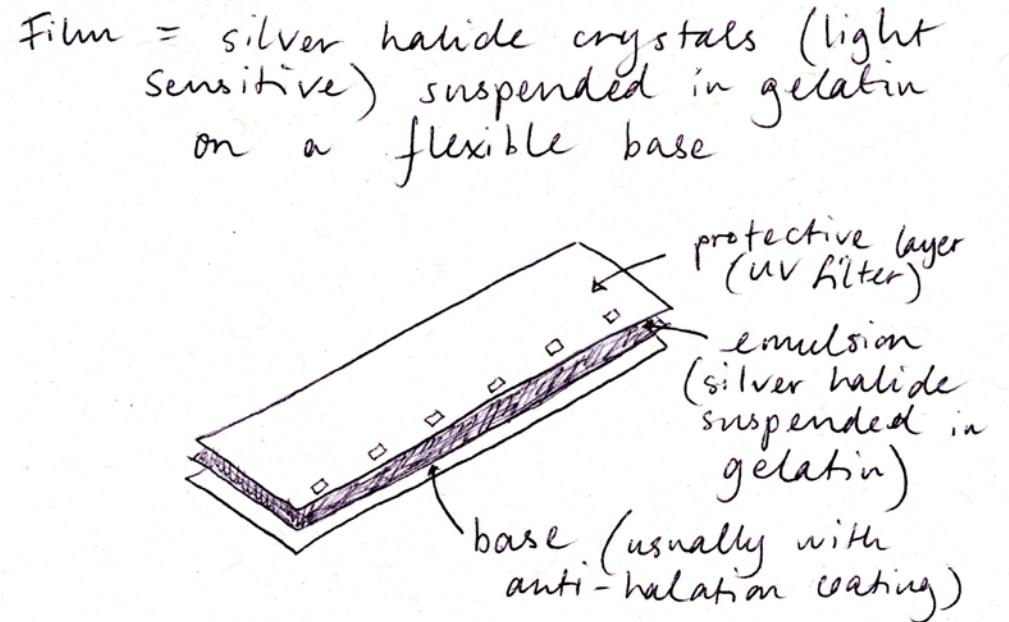 Film = silver halide crystals (light
sensitive) suspended in gelatin
on a flexible base
protective layer
(UV filter)
emulsion
(silver halide
suspended in
gelatin)
base (usually with
anti-halation coating)